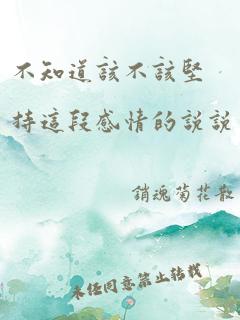 不知道該不該堅
持這段感情的說說
銷魂菊花散
未任同意禁止转载